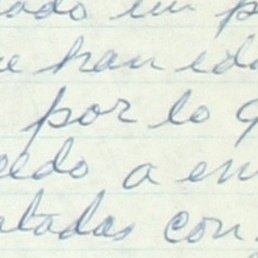 ado en p
e han ed
por lo q
edo a en
tadas con